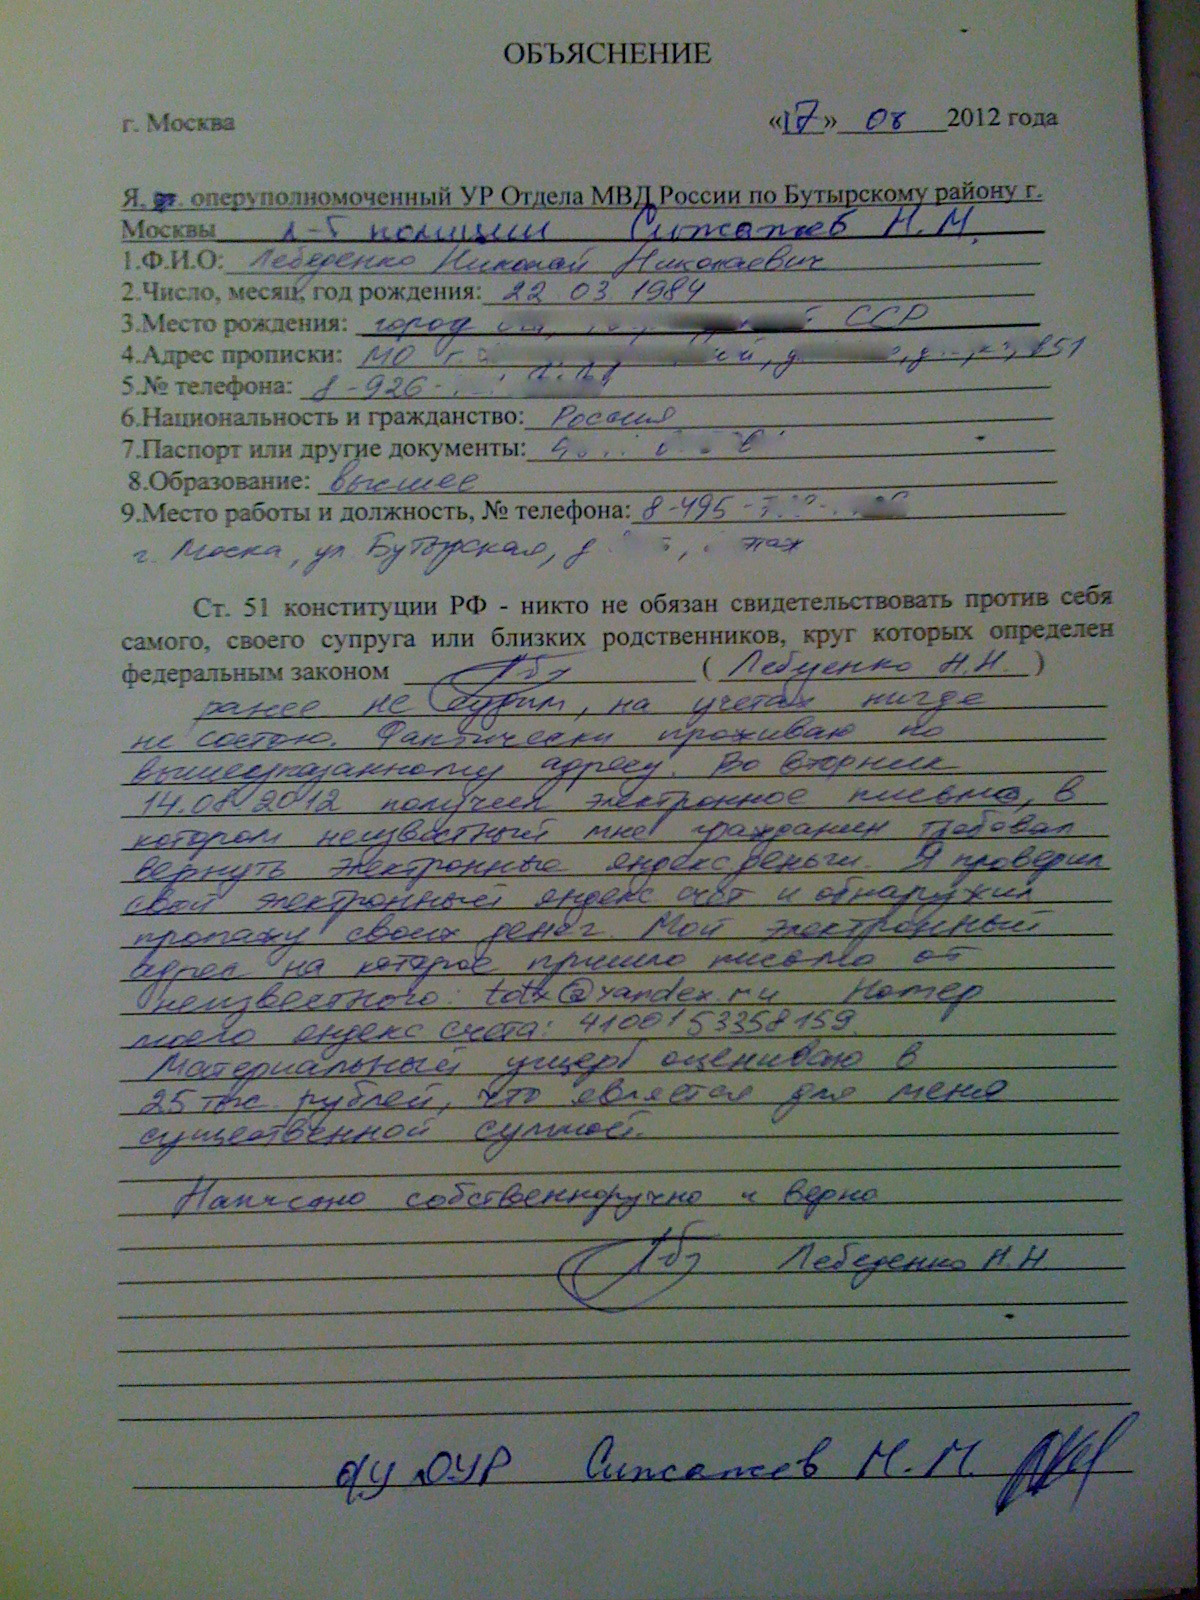 ОБЪЯСНЕНИЕ
г. Москва «17» 08 2012 года
Я. оперуполномоченный УР Отдела МВД России по Бутырскому району г.
Москвы л-т полиции М.
1.Ф.И.О: Лебеденко Николай Николаевич
2.Число, месяц, год рождения: 22 03 1984
3.Место рождения: город ССР
4.Адрес прописки: МО г.
5.№ телефона: 8-926-
6.Национальность и гражданство: Россия
7.Паспорт или другие документы:
8.Образование: высшее
9.Место работы и должность, № телефона: 8-495-
г. Моска, ул. Бутырская, д этаж
Ст. 51 конституции РФ - никто не обязан свидетельствовать против себя
самого, своего супруга или близких родственников, круг которых определен
федеральным законом ( Лебеденко Н.Н. )
ранее не судим, на учетах нигде
не состою. Фактически проживаю по
вышеуказанному адресу. Во вторник
14.08 2012 получил электронное письмо, в
котором неизвестный мне гражданин требовал
вернуть электронные яндекс деньги. Я проверил
свой электронный яндекс счёт и обнаружил
пропажу своих денег. Мой электронный
адрес на которое пришло письмо от
неизвестного: @yandex.ru Номер
моего яндекс счета: 4100153358159
Материальный ущерб оцениваю в
25 тыс. рублей, что является для меня
существенной суммой.
Написано собственноручно и верно
Лебеденко Н.Н
о/у ОУР М. М.